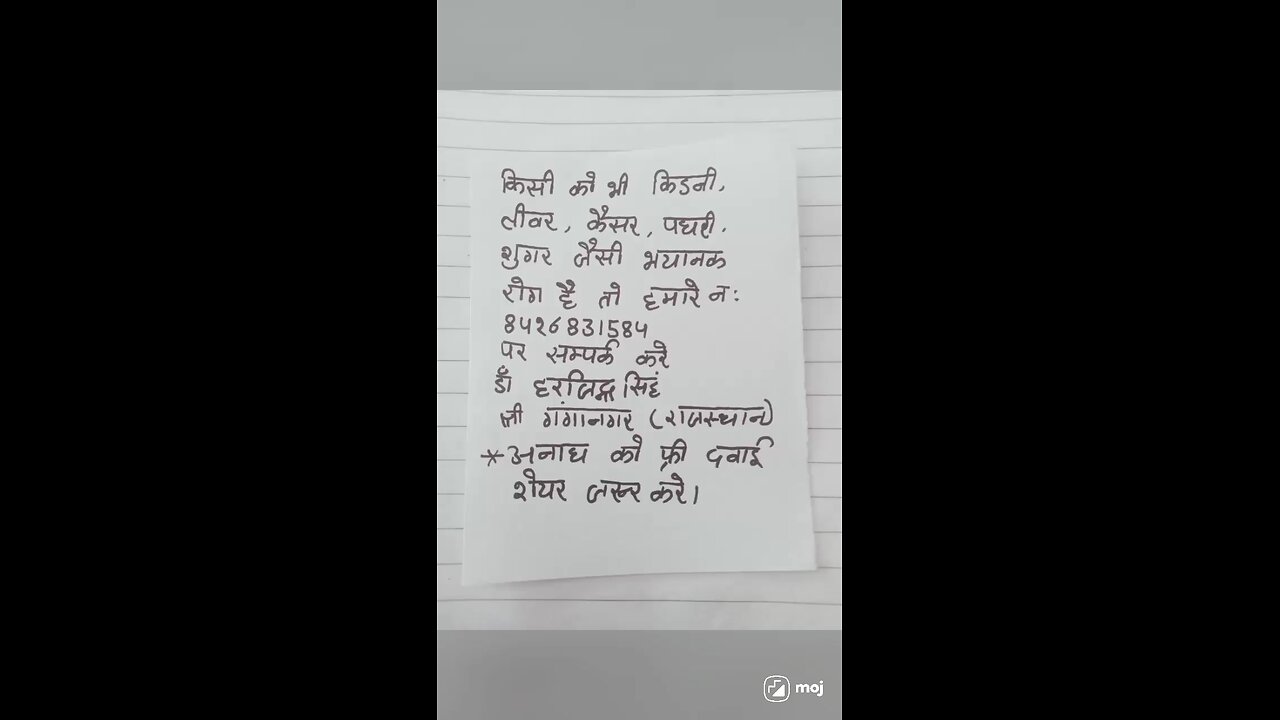 किसी को भी किडनी,
लीवर, कैसर, पथरी,
शुगर जैसी भयानक
रोग है तो हमारे न:
8426831584
पर सम्पर्क करे
डॉ सिहं
श्री गंगानगर (राजस्थान)
* अनाथ को फ्री दवाई
शेयर जरूर करे।
moj